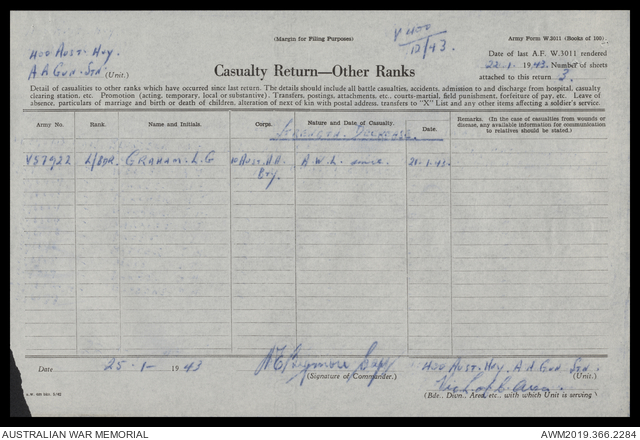 (Margin for Filing Purposes)
Army Form W.3011 (Books of 100)
V400
12/43.
400 Aust. Hvy.
A A Gun. Stn. (Unit.)
Date of last A.F. W.3011 rendered
22.1. 1943. Number of sheets
attached to this return 3.
Casualty Return—Other Ranks
Detail of casualties to other ranks which have occurred since last return. The details should include all battle casualties, accidents, admission to and discharge from hospital, casualty
clearing station, etc. Promotion (acting, temporary, local or substantive). Transfers, postings, attachments, etc., courts-martial, field punishment, forfeiture of pay, etc. Leave of
absence, particulars of marriage and birth or death of children, alteration of next of kin with postal address, transfers to "X" List and any other items affecting a soldier's service.
Army No. Rank. Name and Initials. Corps. Nature and Date of Casualty. Date. Remarks. (In the case of casualties from wounds or disease, any available information for communication to relatives should be stated.)
Strength Decrease.
V57922 L/Bdr. Graham. L.G Aust. Bty. A.W.L. since 21.1.43.
Date 25-1- 1943
Capt
(Signature of Commander.)
400 Aust. Hvy. A A Gun Stn.
(Unit.)
Vic L of C Area.
(Bde., Divn., Area, etc., with which Unit is serving)
AUSTRALIAN WAR MEMORIAL
AWM2019.366.2284